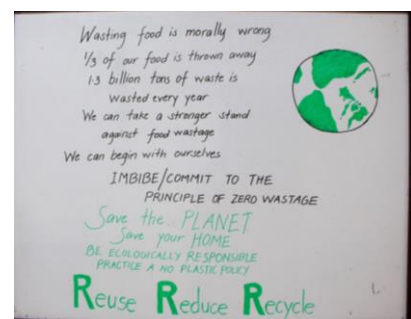 Wasting food is morally wrong
1/3 of our food is thrown away
1.3 billion tons of waste is
wasted every year
We can take a stronger stand
against food wastage
We can begin with ourselves
IMBIBE/COMMIT TO THE
PRINCIPLE OF ZERO WASTAGE
Save the PLANET
Save your HOME
BE ECOLOGICALLY RESPONSIBLE
PRACTICE A NO PLASTIC POLICY
Reuse Reduce Recycle